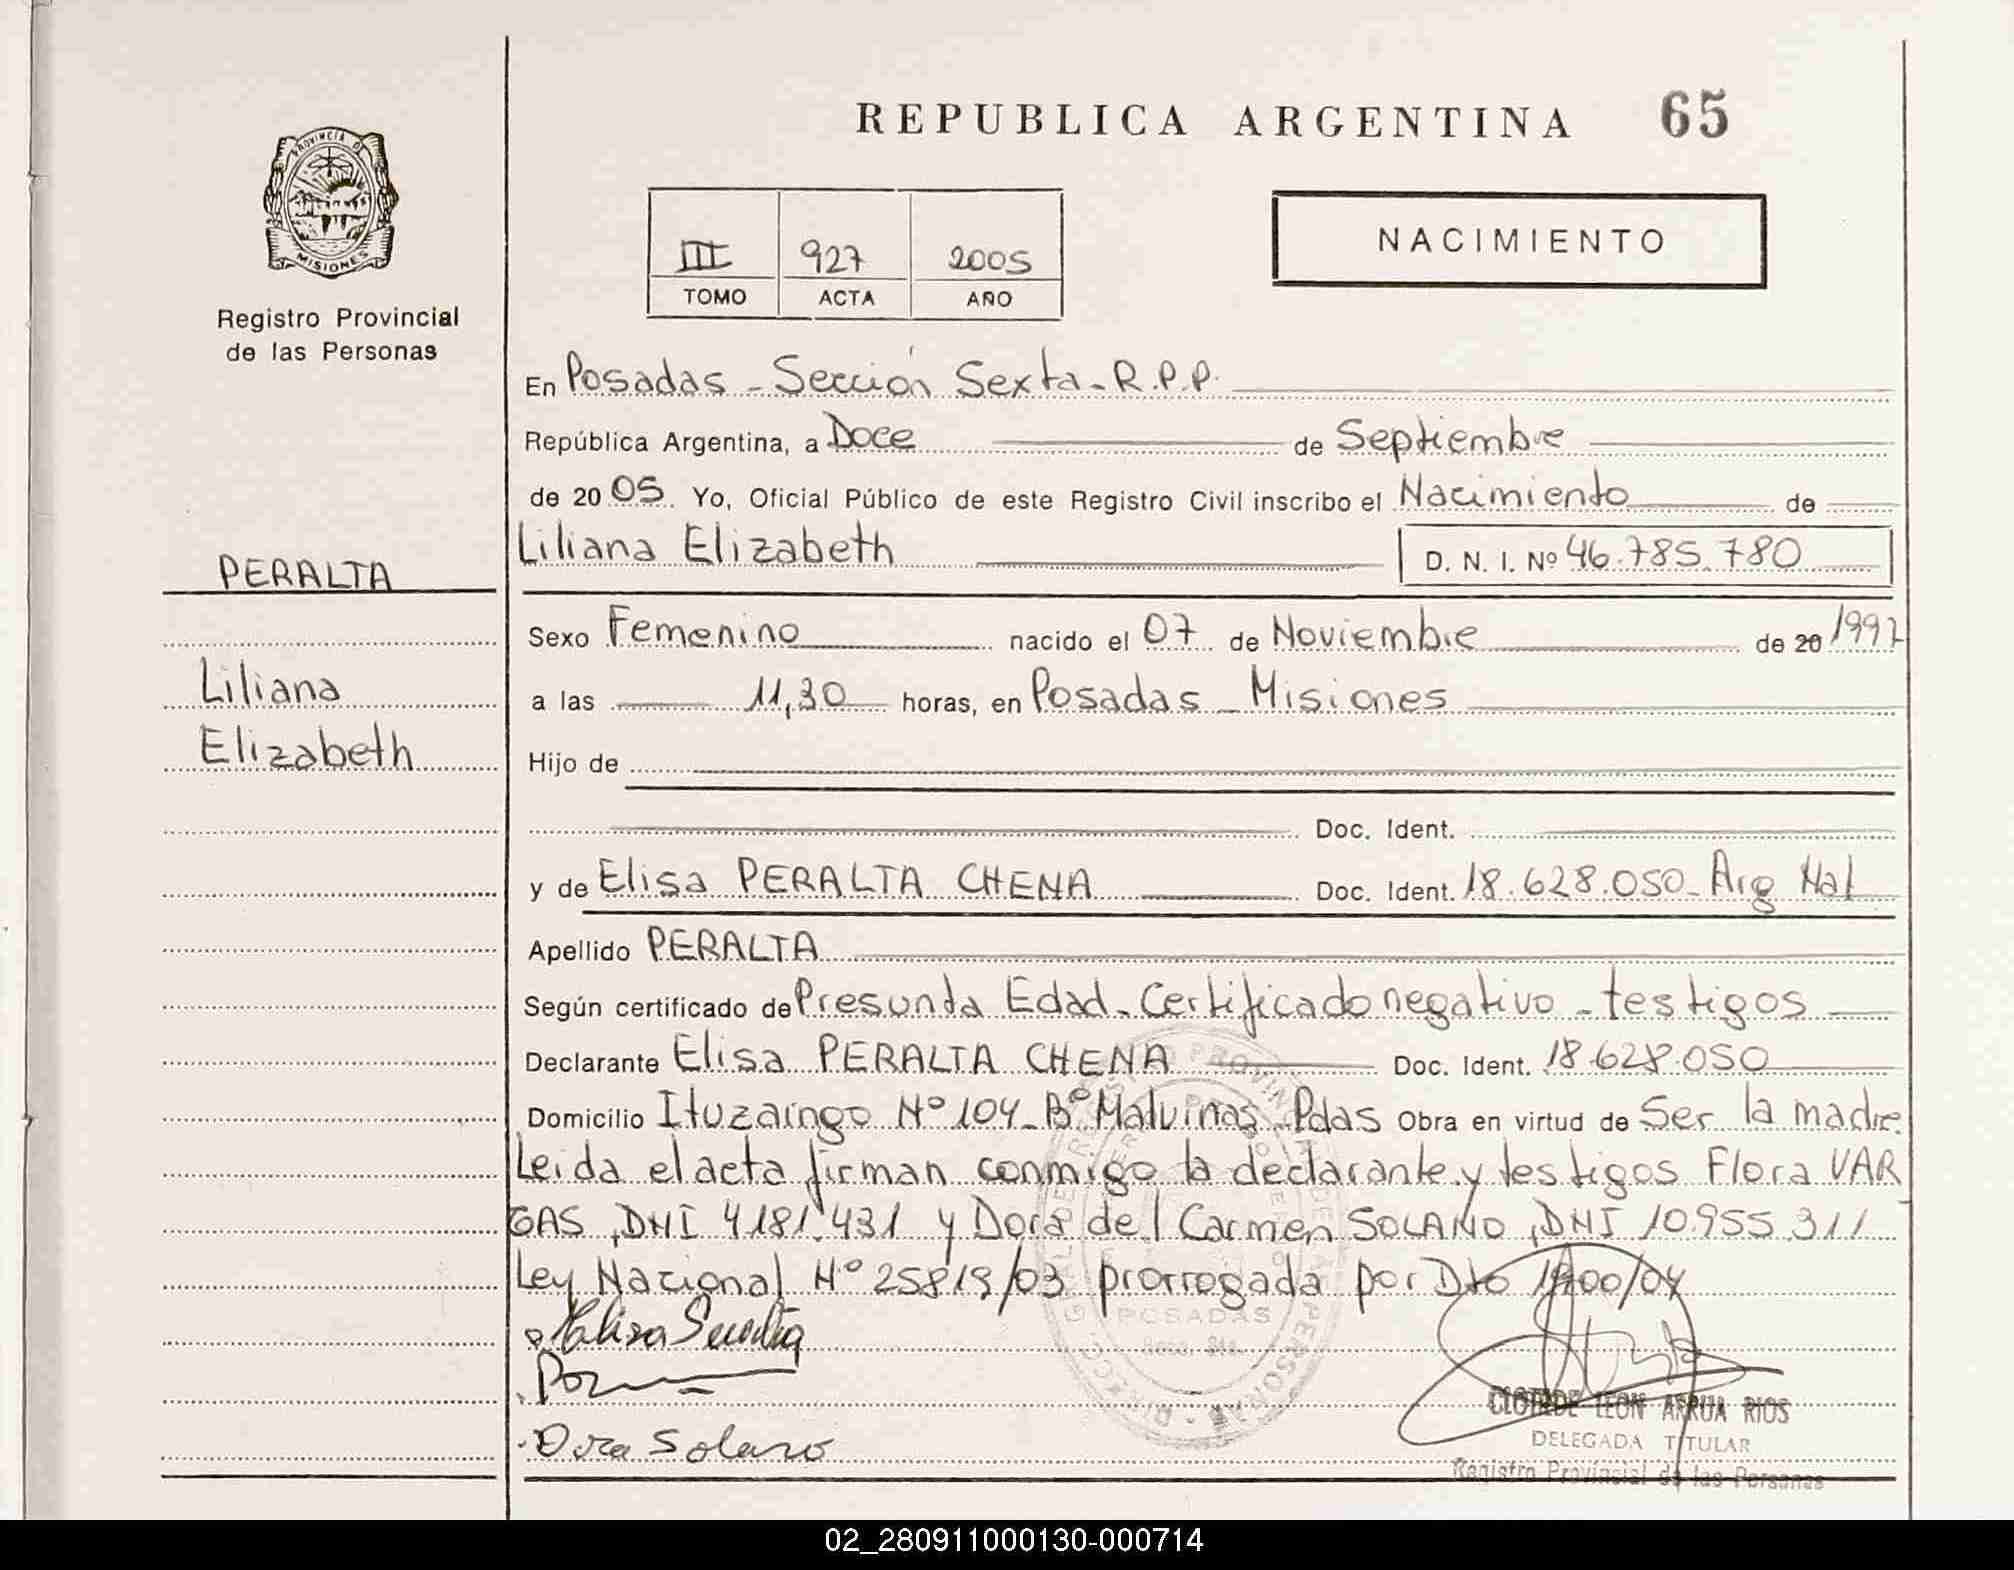 REPUBLICA ARGENTINA 65
PROVINCIA DE
MISIONES
Registro Provincial
de las Personas
III 927 2005
TOMO ACTA AÑO
NACIMIENTO
En Posadas - Sección Sexta - R.P.P.
República Argentina, a Doce de Septiembre
de 20 05. Yo, Oficial Público de este Registro Civil inscribo el Nacimiento de
PERALTA
Liliana Elizabeth D. N. I. Nº 46.785.780
Sexo Femenino nacido el 07 de Noviembre de 20 1997
Liliana
a las 11,30 horas, en Posadas - Misiones
Elizabeth
Hijo de
Doc. Ident.
y de Elisa PERALTA CHENA Doc. Ident. 18.628.050 - Arg Nat
Apellido PERALTA
Según certificado de Presunta Edad - Certificado negativo - testigos
Declarante Elisa PERALTA CHENA Doc. Ident. 18.628.050
Domicilio Ituzaingo Nº 104 - Bº Malvinas - Pdas Obra en virtud de Ser la madre.
Leida el acta firman conmigo la declarante y testigos Flora VAR
GAS, DNI 4181.431 y Dora del Carmen SOLANO, DNI 10.955.311
Ley Nacional Nº 25819/03 prorrogada por Dto 1900/04
POSADAS
Dora Solano
CLOTILDE LEON ARRUA RIOS
DELEGADA TITULAR
Registro Provincial de las Personas
02_280911000130-000714